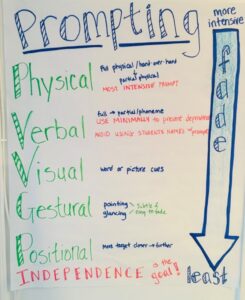 Prompting
more intensive
fade
least
Physical
full physical / hand-over-hand
partial physical
MOST INTENSIVE PROMPT
Verbal
full → partial/phoneme
USE MINIMALLY to prevent dependence
AVOID USING STUDENTS NAMES w/ prompt
Visual
word or picture cues
Gestural
pointing
glancing
subtle &
easy to fade
Positional
move target closer → further
INDEPENDENCE is the goal!